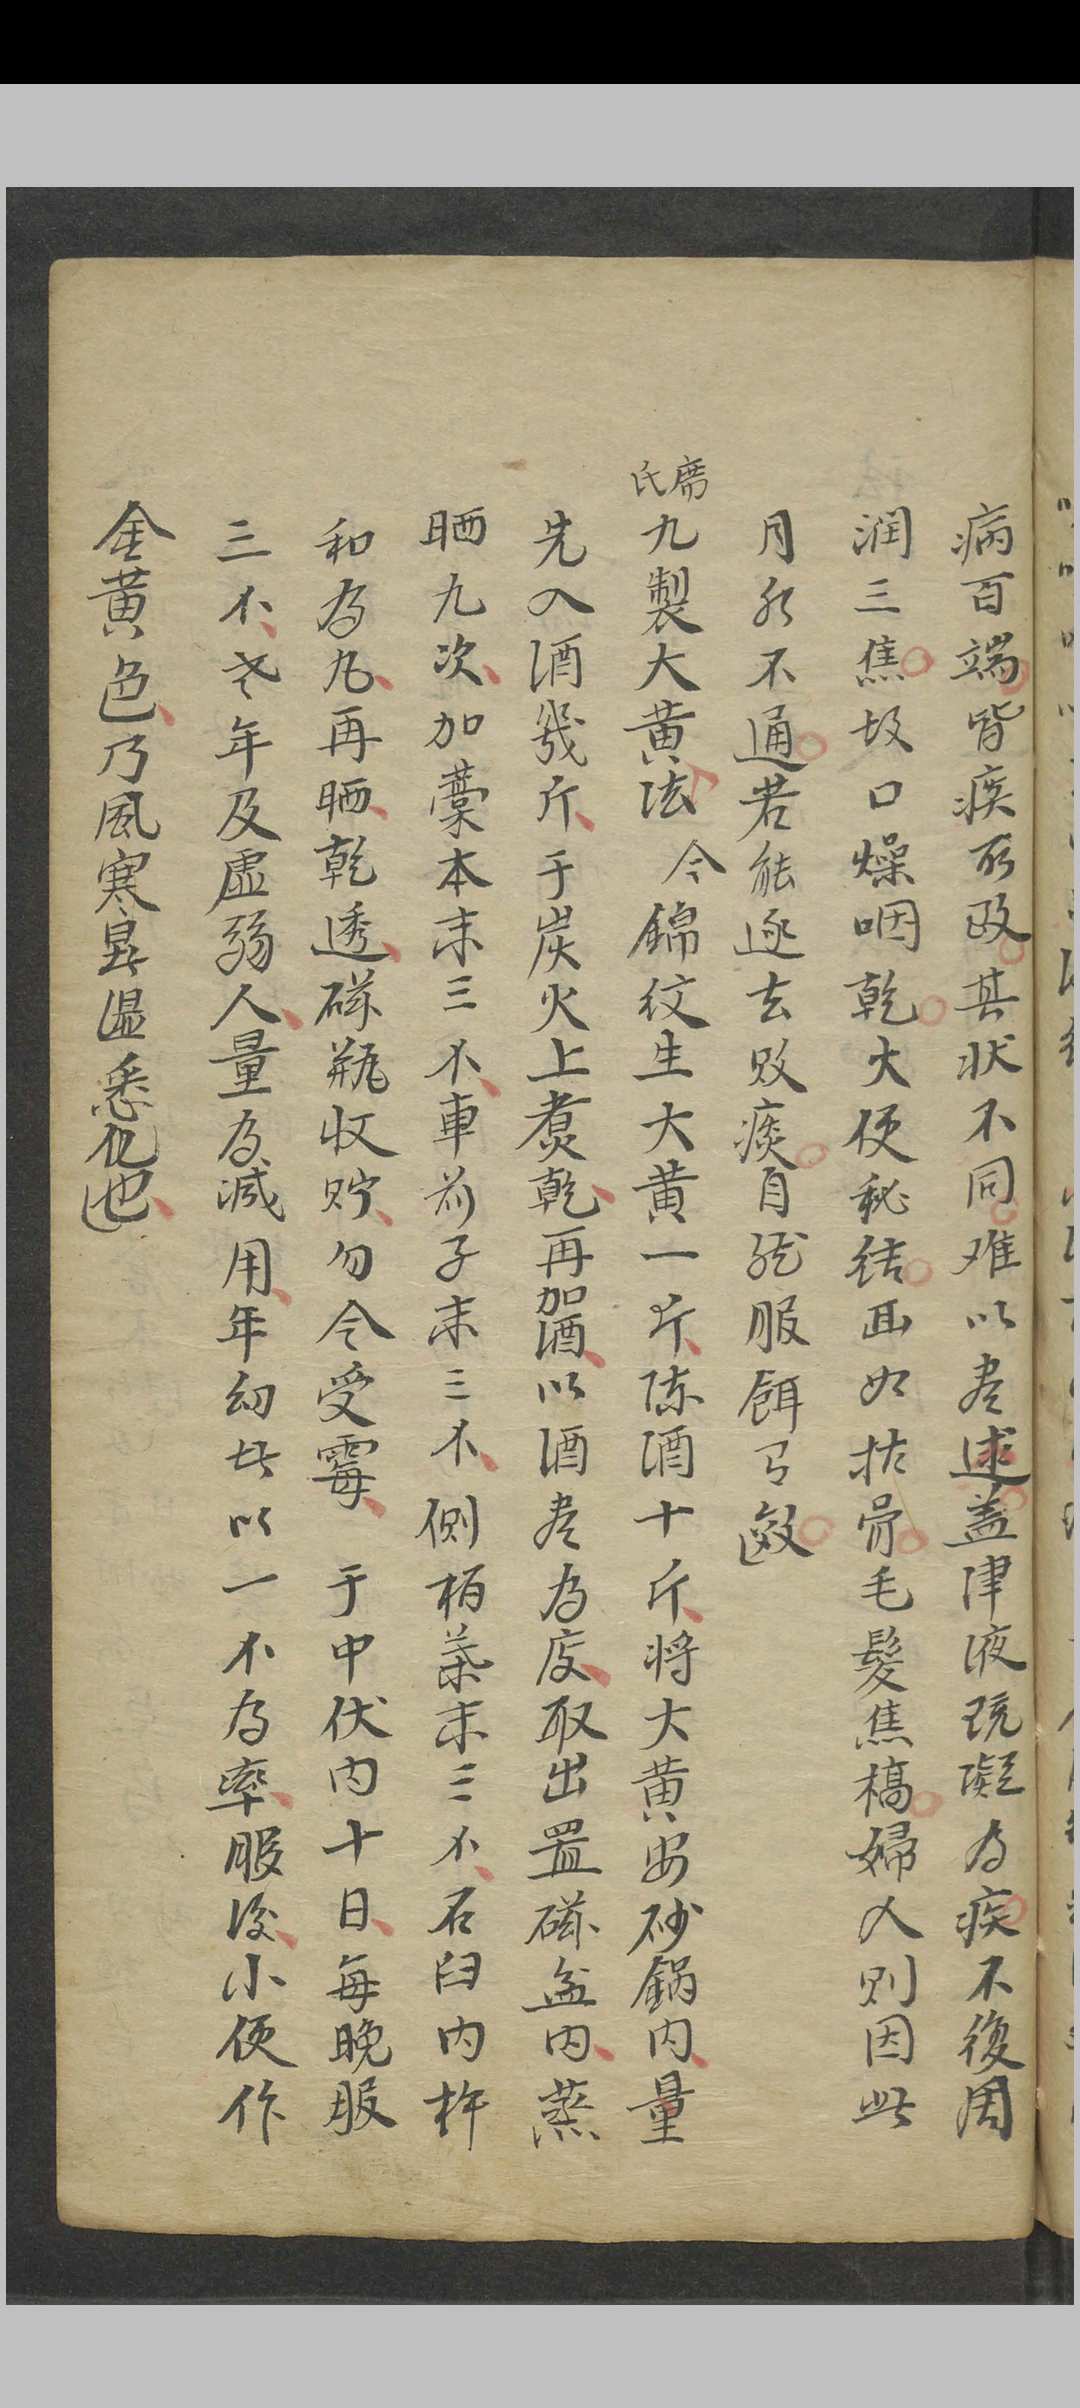 病百端皆痰所致其状不同难以尽述盖津液既凝为痰不復周
润三焦故口燥咽乾大便秘结面如枯骨毛髮焦槁婦人则因此
月水不通若能逐去败痰自然服餌有效
席氏
九製大黄法 今錦纹生大黄一斤陈酒十斤将大黄安砂锅内量
先入酒幾斤于炭火上煮乾再加酒以酒尽为度取出置磁盆内蒸
晒九次加藁本末三不車前子末三不側栢葉末三不石臼内杵
和为丸再晒乾透磁瓶收贮勿令受霉 于中伏内十日每晚服
三不老年及虚弱人量为减用年幼者以一不为率服後小便作
金黄色乃風寒暑温悉化也